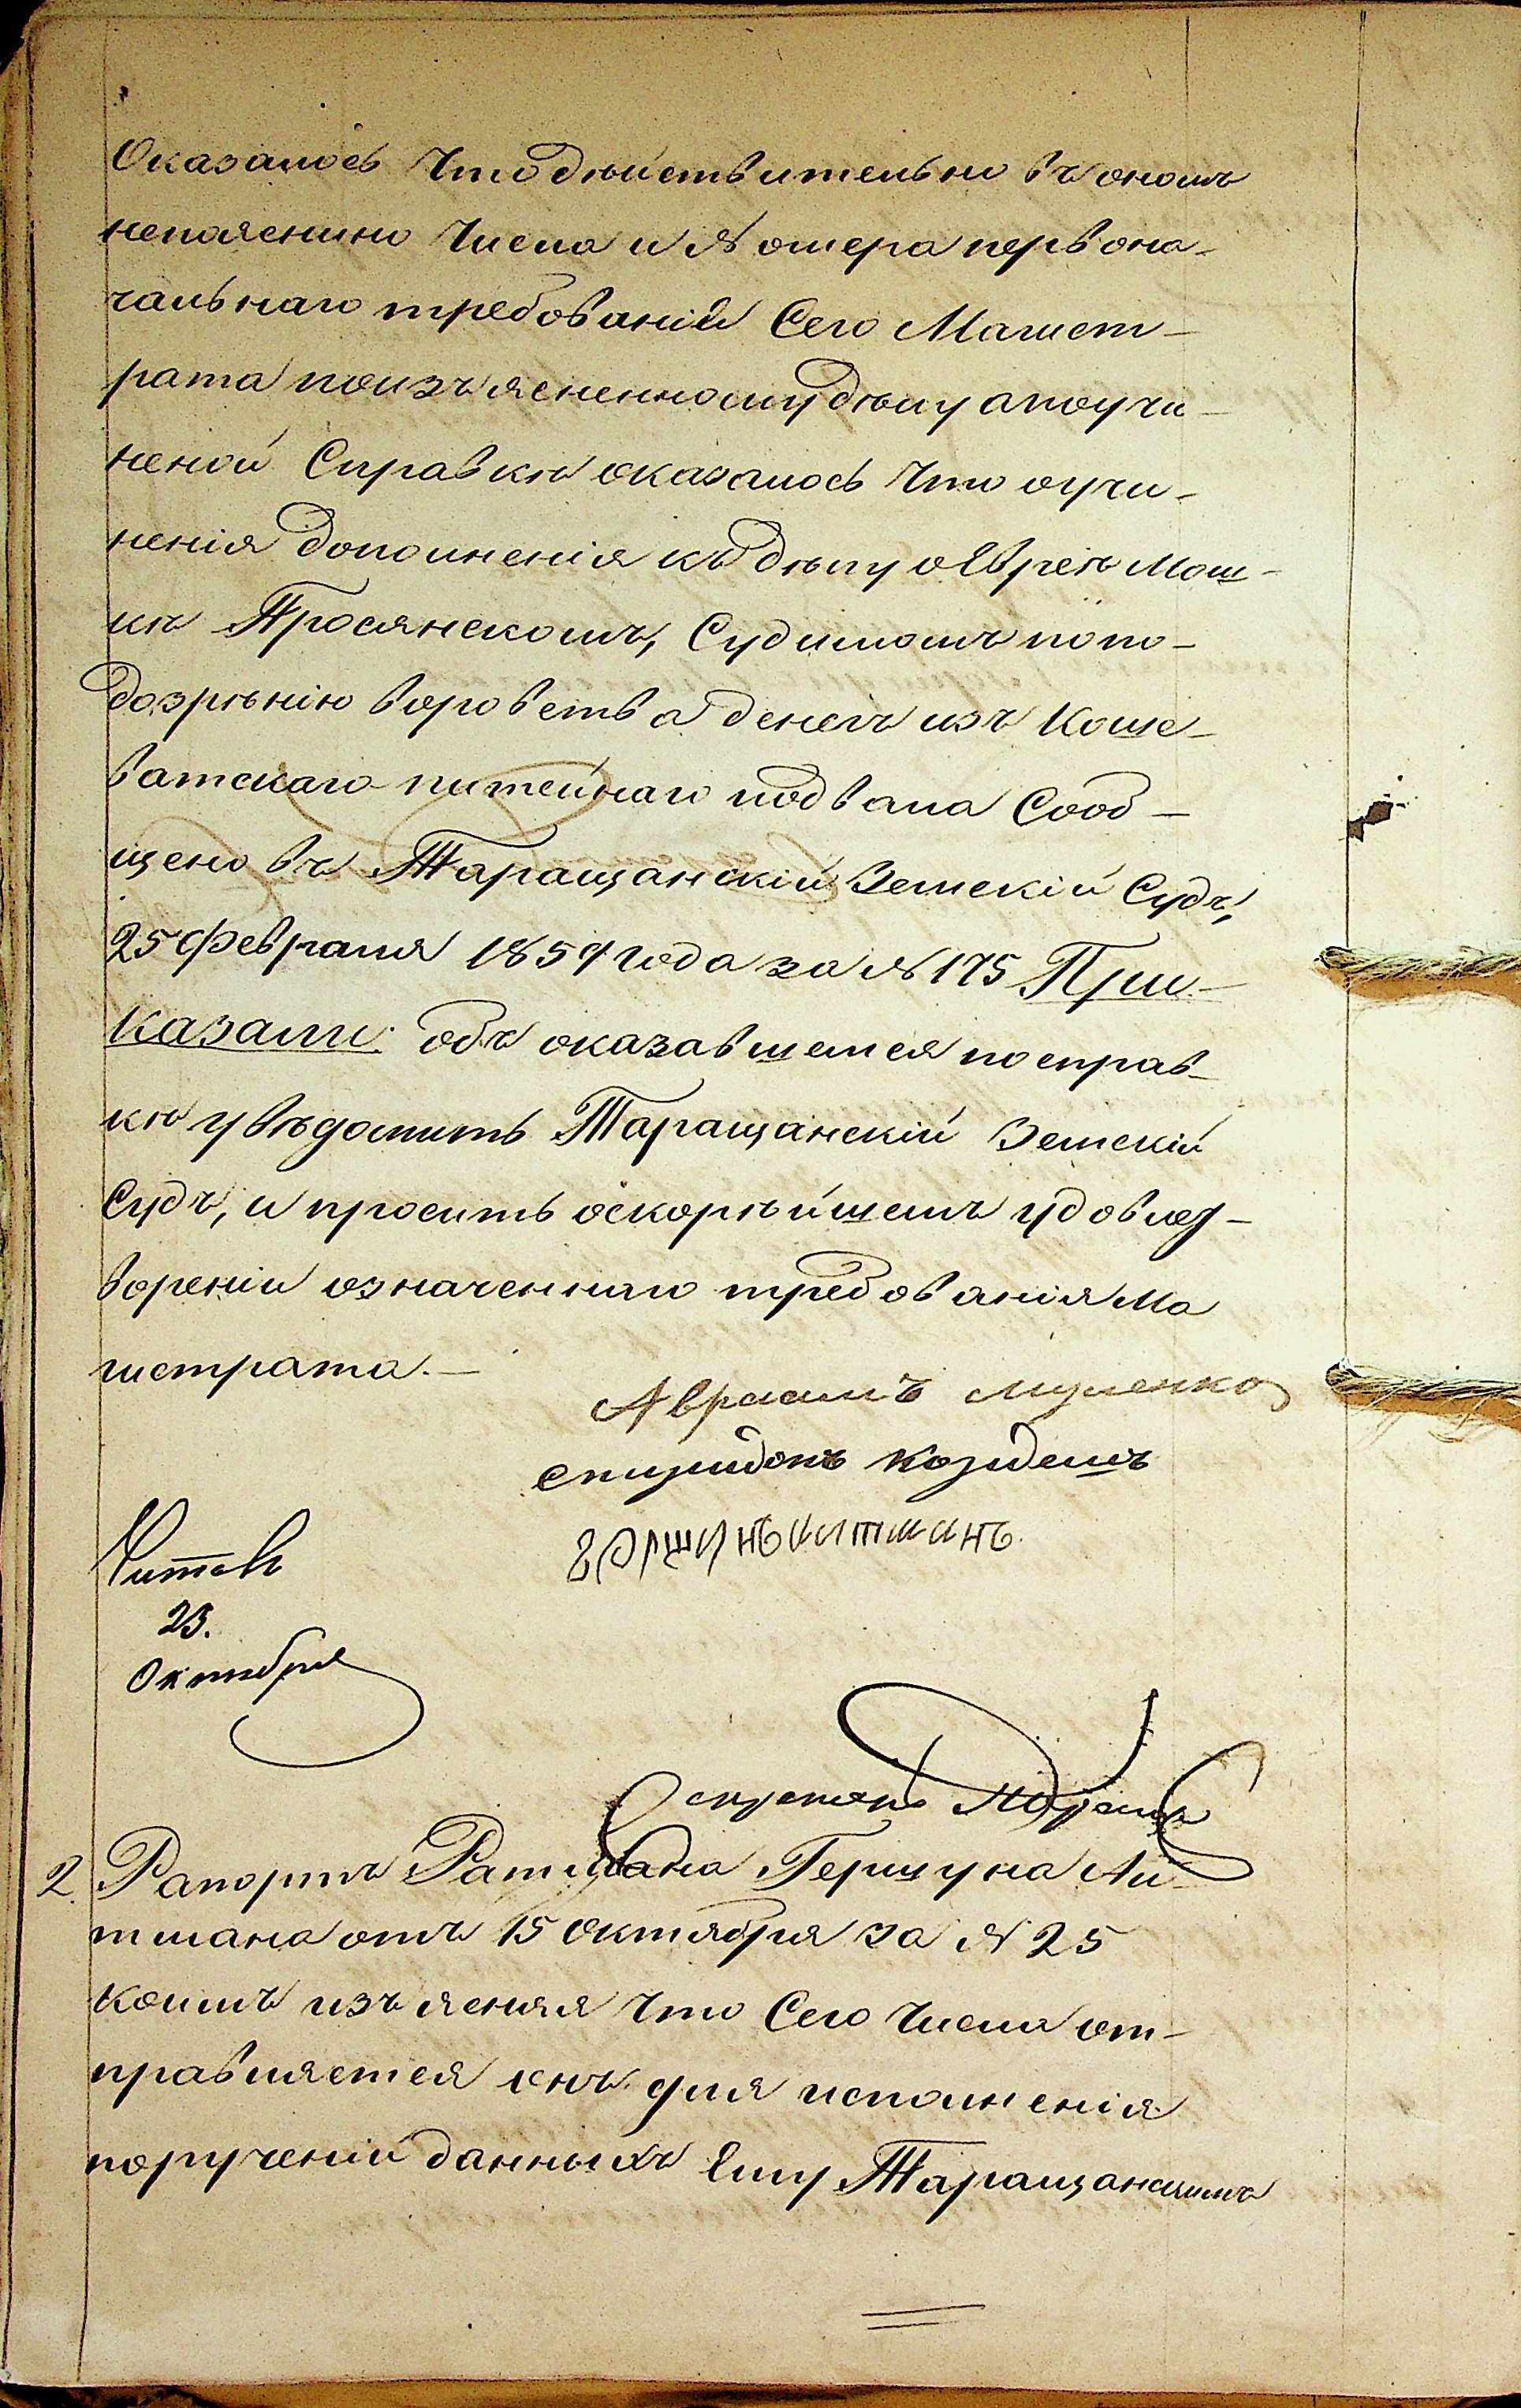 Оказалось Что действительно въ ономъ
непояснино Числа и № омера первона-
чальнаго требованій Сего Магист-
рата поизъясненному делу апоучи-
неной Справки оказалось Что оучи-
ненія дополненія къ делу о Еврѣе Мош-
кѣ Просянскомъ, Судимомъ попо-
дозрѣнію воровства денегъ изъ Коше-
ватскаго питейнаго подвала Сооб-
щено въ Таращанскій Земскій Судъ,
25 февраля 1854 года за № 175 При-
казали: объ оказавшемся посправ-
кѣ увѣдомить Таращанскій Земскій
Судъ, и просить оскорѣйшемъ удовлет-
вореніи означеннаго требованія Ма
гистрата.-
Авраамъ
Читалъ
23.
Октября
Секретарь
2. Рапортъ Ратмана Гершуна Ай-
тмана отъ 15 Октября за № 25
коимъ изъясняя Что Сего Числа от-
правляется онъ для исполненія
порученій данныхъ Ему Таращанскимъ